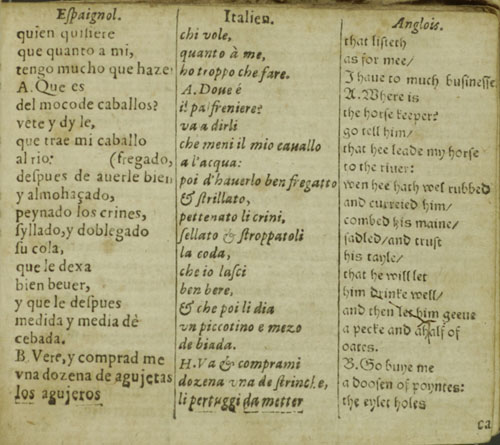 Espaignol.
quien quisiere
que quanto a mi,
tengo mucho que haze
A. Que es
del moco de caballos?
vete y dy le,
que trae mi caballo
al rio: (fregado,
despues de auerle bien
y almohaçado,
peynado los crines,
syllado, y doblegado
su cola,
que le dexa
bien beuer,
y que le despues
medida y media de
cebada.
B. Vete, y comprad me
vna dozena de agujetas
los agujeros
Italien.
chi vole,
quanto à me,
ho troppo che fare.
A. Doue é
il palfreniere?
va a dirli
che meni il mio cauallo
a l'acqua:
poi d'hauerlo ben fregatto
& strillato,
pettenato li crini,
sellato & stroppatoli
la coda,
che io lasci
ben bere,
& che poi li dia
vn piccotino e mezo
de biada.
H. Va & comprami
dozena vna de strinche,
li pertuggi da metter
Anglois.
that listeth
as for mee/
I haue to much businesse
A. Where is
the horse keeper?
go tell him/
that hee leade my horse
to the riuer:
wen hee hath wel rubbed
and curreied him/
combed his maine/
sadled/ and trust
his tayle/
that he will let
him drinke well/
and then let him geeue
a pecke and ahalf of
oates.
B. Go buye me
a doosen of poyntes:
the eylet holes
ca